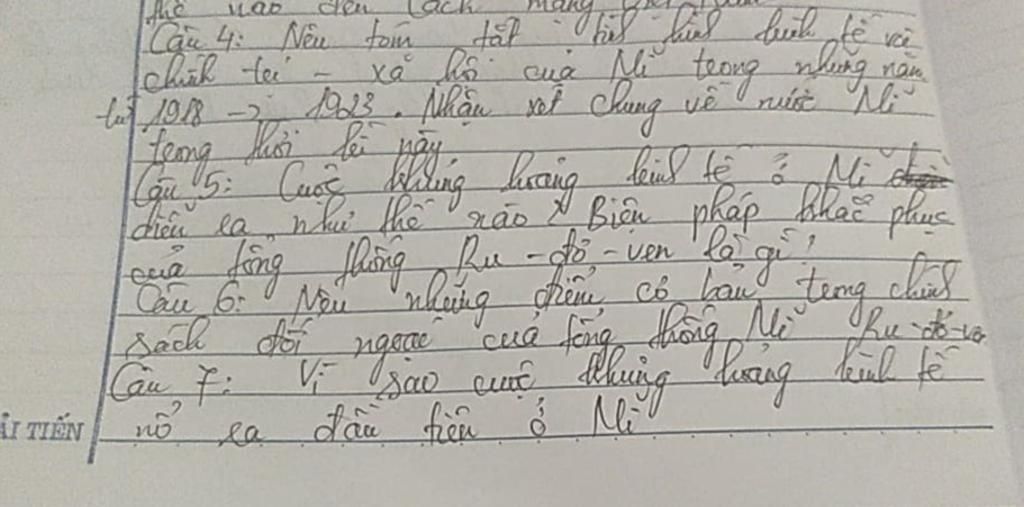 thế nào đến cách mạng
Câu 4: Nêu tóm tắt tình hình kinh tế và
chính trị - xã hội của Mĩ trong những năm
từ 1918 -> 1923. Nhận xét chung về nước Mĩ
trong thời kì này
Câu 5: Cuộc khủng hoảng kinh tế ở Mĩ
diễn ra như thế nào? Biện pháp khắc phục
của tổng thống Ru-dơ-ven là gì?
Câu 6: Nêu những điểm cơ bản trong chính
sách đối ngoại của tổng thống Mĩ Ru-dơ-ve
Câu 7: Vì sao cuộc khủng hoảng kinh tế
nổ ra đầu tiên ở Mĩ
ẢI TIẾN